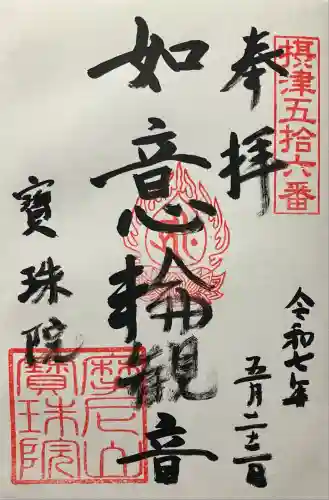 摂津五拾六番
奉拝
令和七年
五月二十三日
如意輪觀音
寶珠院
摩尼山
寶珠院